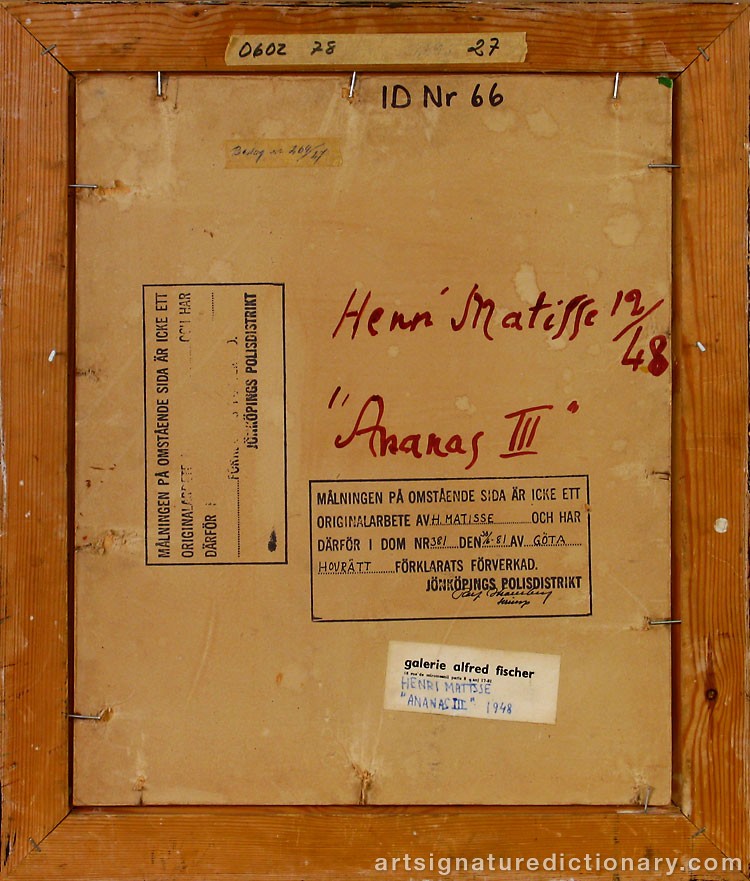 0602 78 27
ID Nr 66
209/27
MÅLNINGEN PÅ OMSTÅENDE SIDA ÄR ICKE ETT
ORIGINALARBETE OCH HAR
DÄRFÖR I
JÖNKÖPINGS POLISDISTRIKT
Henri Matisse 12/48
"Ananas III"
MÅLNINGEN PÅ OMSTÅENDE SIDA ÄR ICKE ETT
ORIGINALARBETE AV H. MATISSE OCH HAR
DÄRFÖR I DOM NR 381 DEN -81 AV GÖTA
HOVRÄTT FÖRKLARATS FÖRVERKAD.
JÖNKÖPINGS POLISDISTRIKT
galerie alfred fischer
HENRI MATISSE
"ANANAS III" 1948
artsignaturedictionary.com